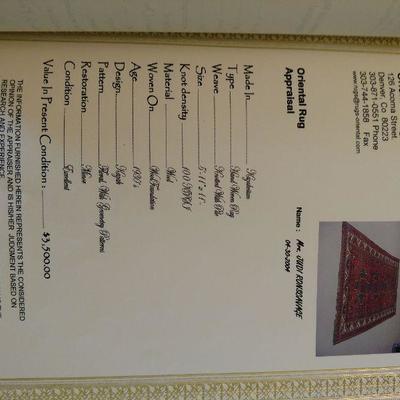 126 Acoma Street
Denver, Co 80223
303-871-0551 Phone
303-744-1858 Fax
www.rugs@rugs-oriental.com
Oriental Rug
Appraisal
Name: Mrs. JUDI
04-30-2004
Made In
Type Hand Woven Rug
Weave Knotted With Pile
Size 5'-11" x 11'-
Knot density 100 KPSI
Material Wool
Woven On Wool Foundation
Age 1930's
Design Kazak
Pattern Floral With Geometry Patterns
Restoration Minor
Condition Excellent
Value In Present Condition: $3,500.00
THE INFORMATION FURNISHED HEREIN REPRESENTS THE CONSIDERED
OPINION OF THE APPRAISER AND IS HIS/HER JUDGMENT BASED ON
RESEARCH AND EXPERIENCE.